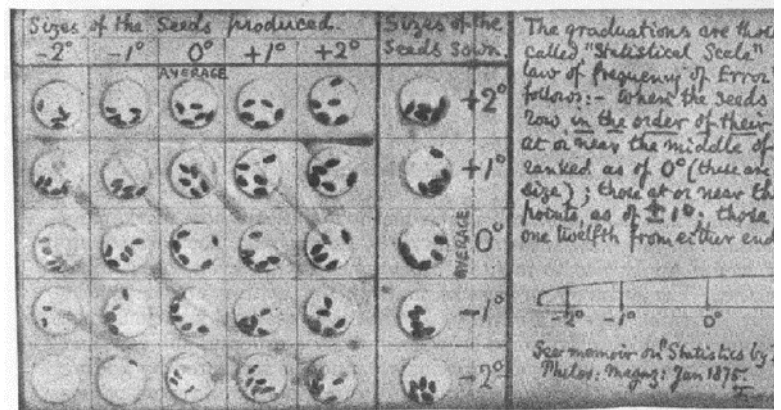 Sizes of the Seeds produced.
-2° -1° 0° +1° +2°
AVERAGE
Sizes of the
Seeds Sown.
+2°
+1°
0°
AVERAGE
-1°
-2°
The graduations are
called "Statistical Scale"
law of frequency of Error
follows:- When the seeds
row in the order of their
at or near the middle of
ranked as of 0° (these are
size); those at or near
points, as of ±1°: those
one twelfth from either end
-2° -1° 0°
See memoir on "Statistics by
Philos: Magaz: Jan 1875.